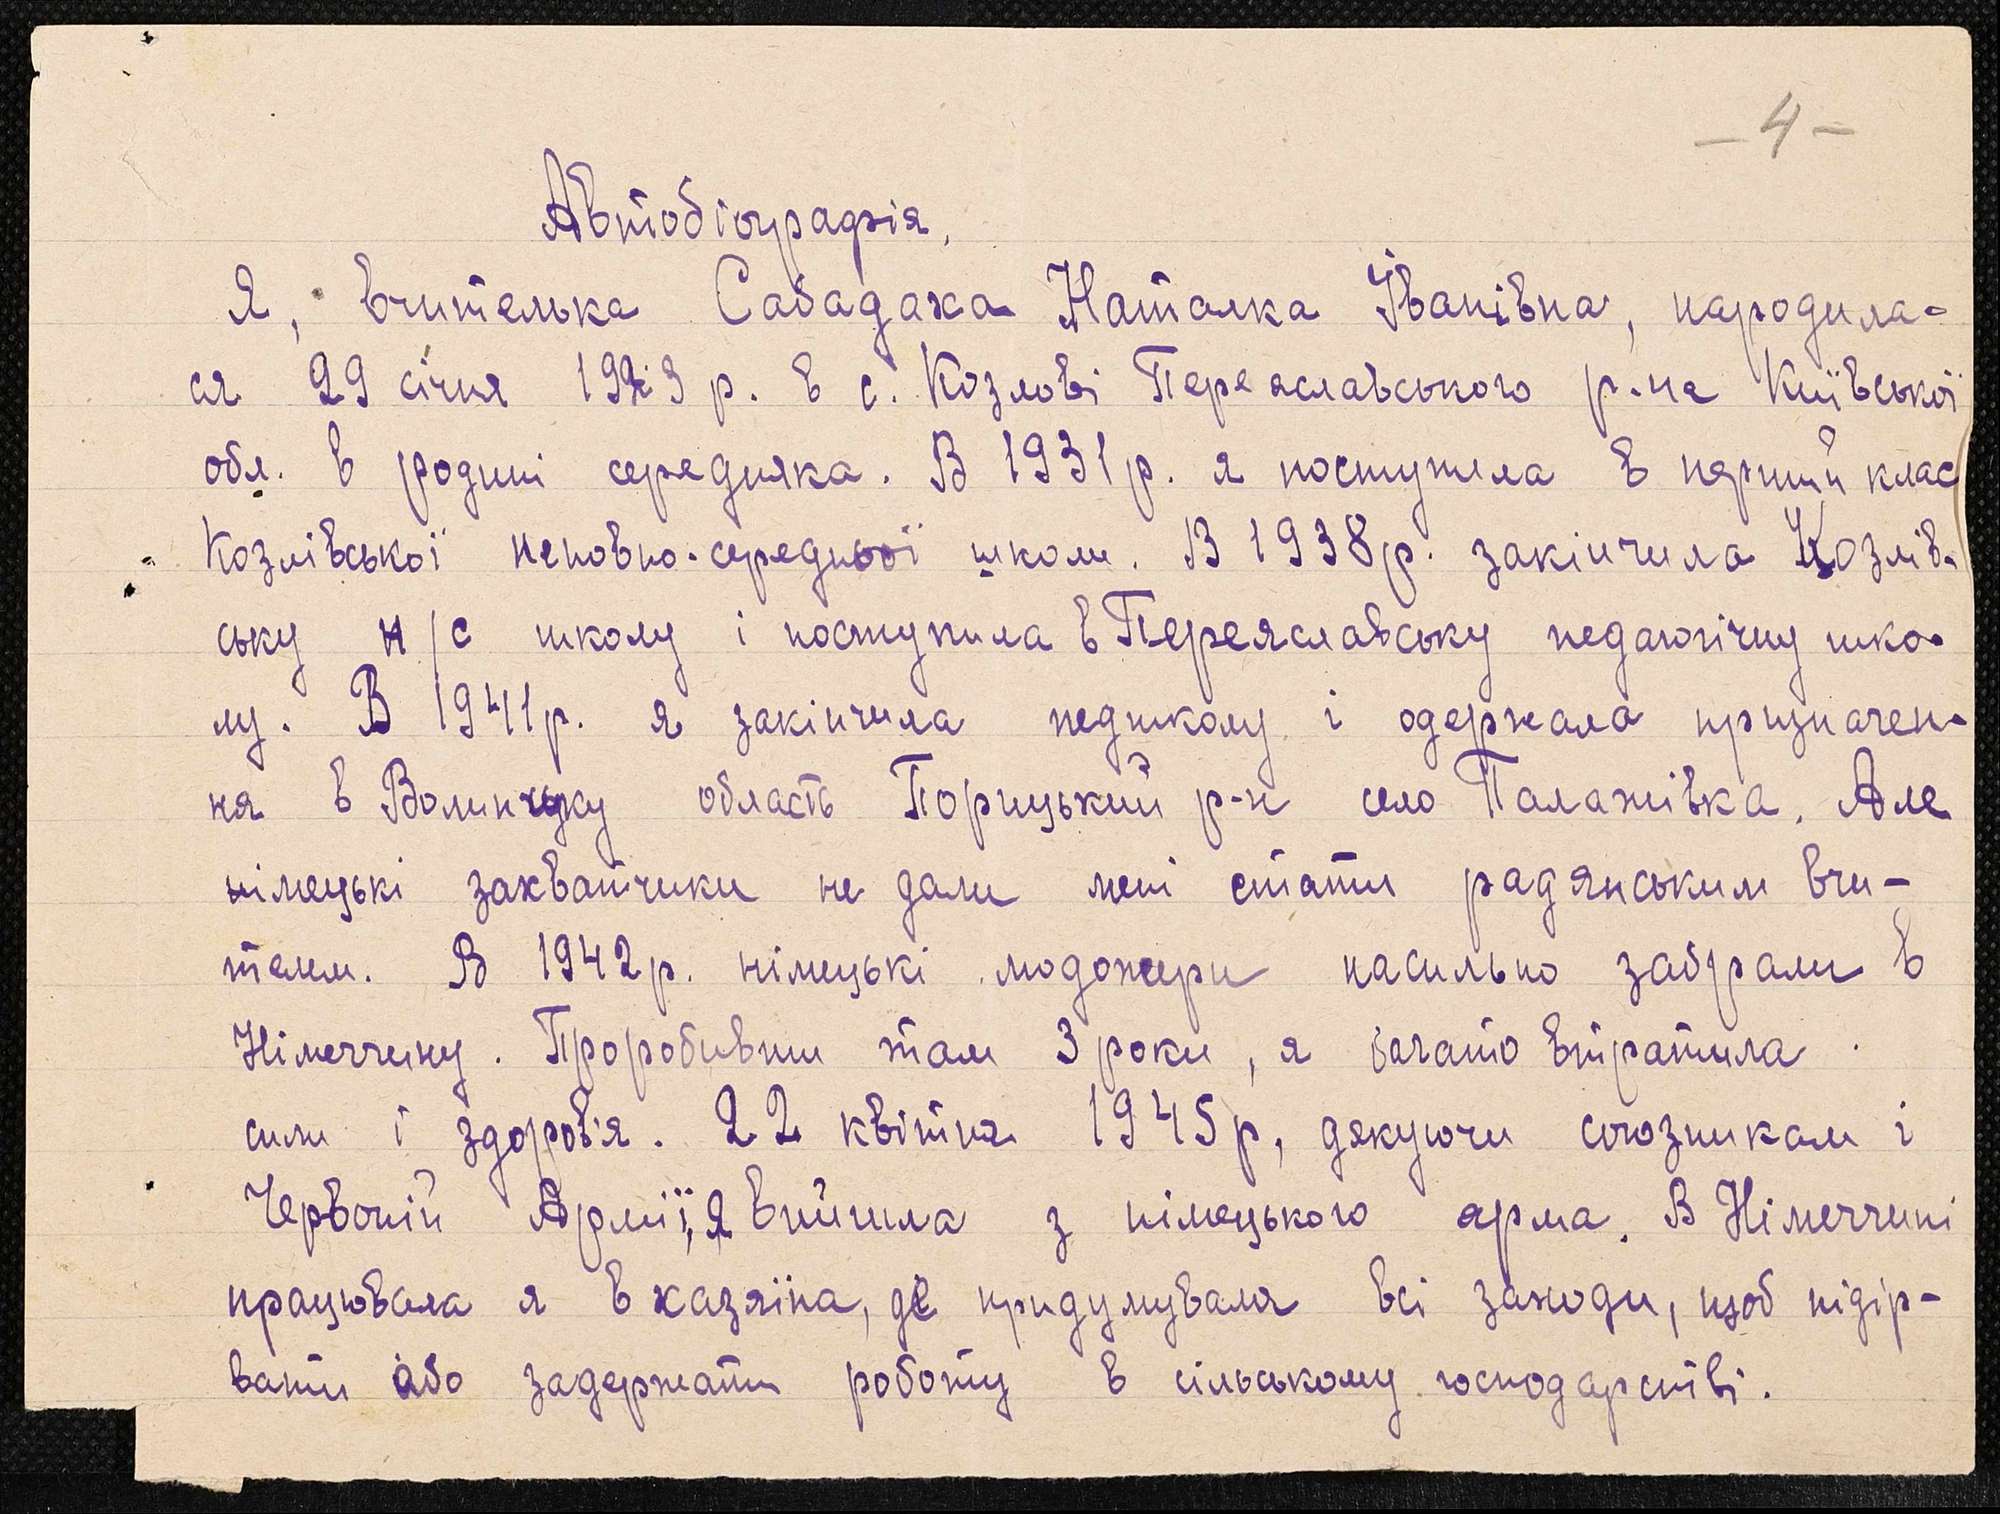 -4-
Автобіографія.
Я, вчителька Сабадаха Наталка Іванівна, народила-
ся 29 січня 1923 р. в с. Козлові Переяславського р-на Київської
обл. в родині середняка. В 1931 р. я поступила в перший клас
Козлівської неповно-середньої школи. В 1938 р. закінчила Козлів-
ську н/с школу і поступила в Переяславську педагогічну шко-
лу. В 1941 р. я закінчила педшколу і одержала призначен-
ня в Волинську область Порицький р-н село Палажівка. Але
німецькі захватчики не дали мені стати радянським вчи-
телем. В 1942 р. німецькі людожери насильно забрали в
Німеччину. Проробивши там 3 роки, я багато втратила
сили і здоров'я. 22 квітня 1945 р, дякуючи союзникам і
Червоній Армії, я вийшла з німецького ярма. В Німеччині
працювала я в хазяїна, де придумувала всі заходи, щоб підір-
вати або задержати роботу в сільському господарстві.